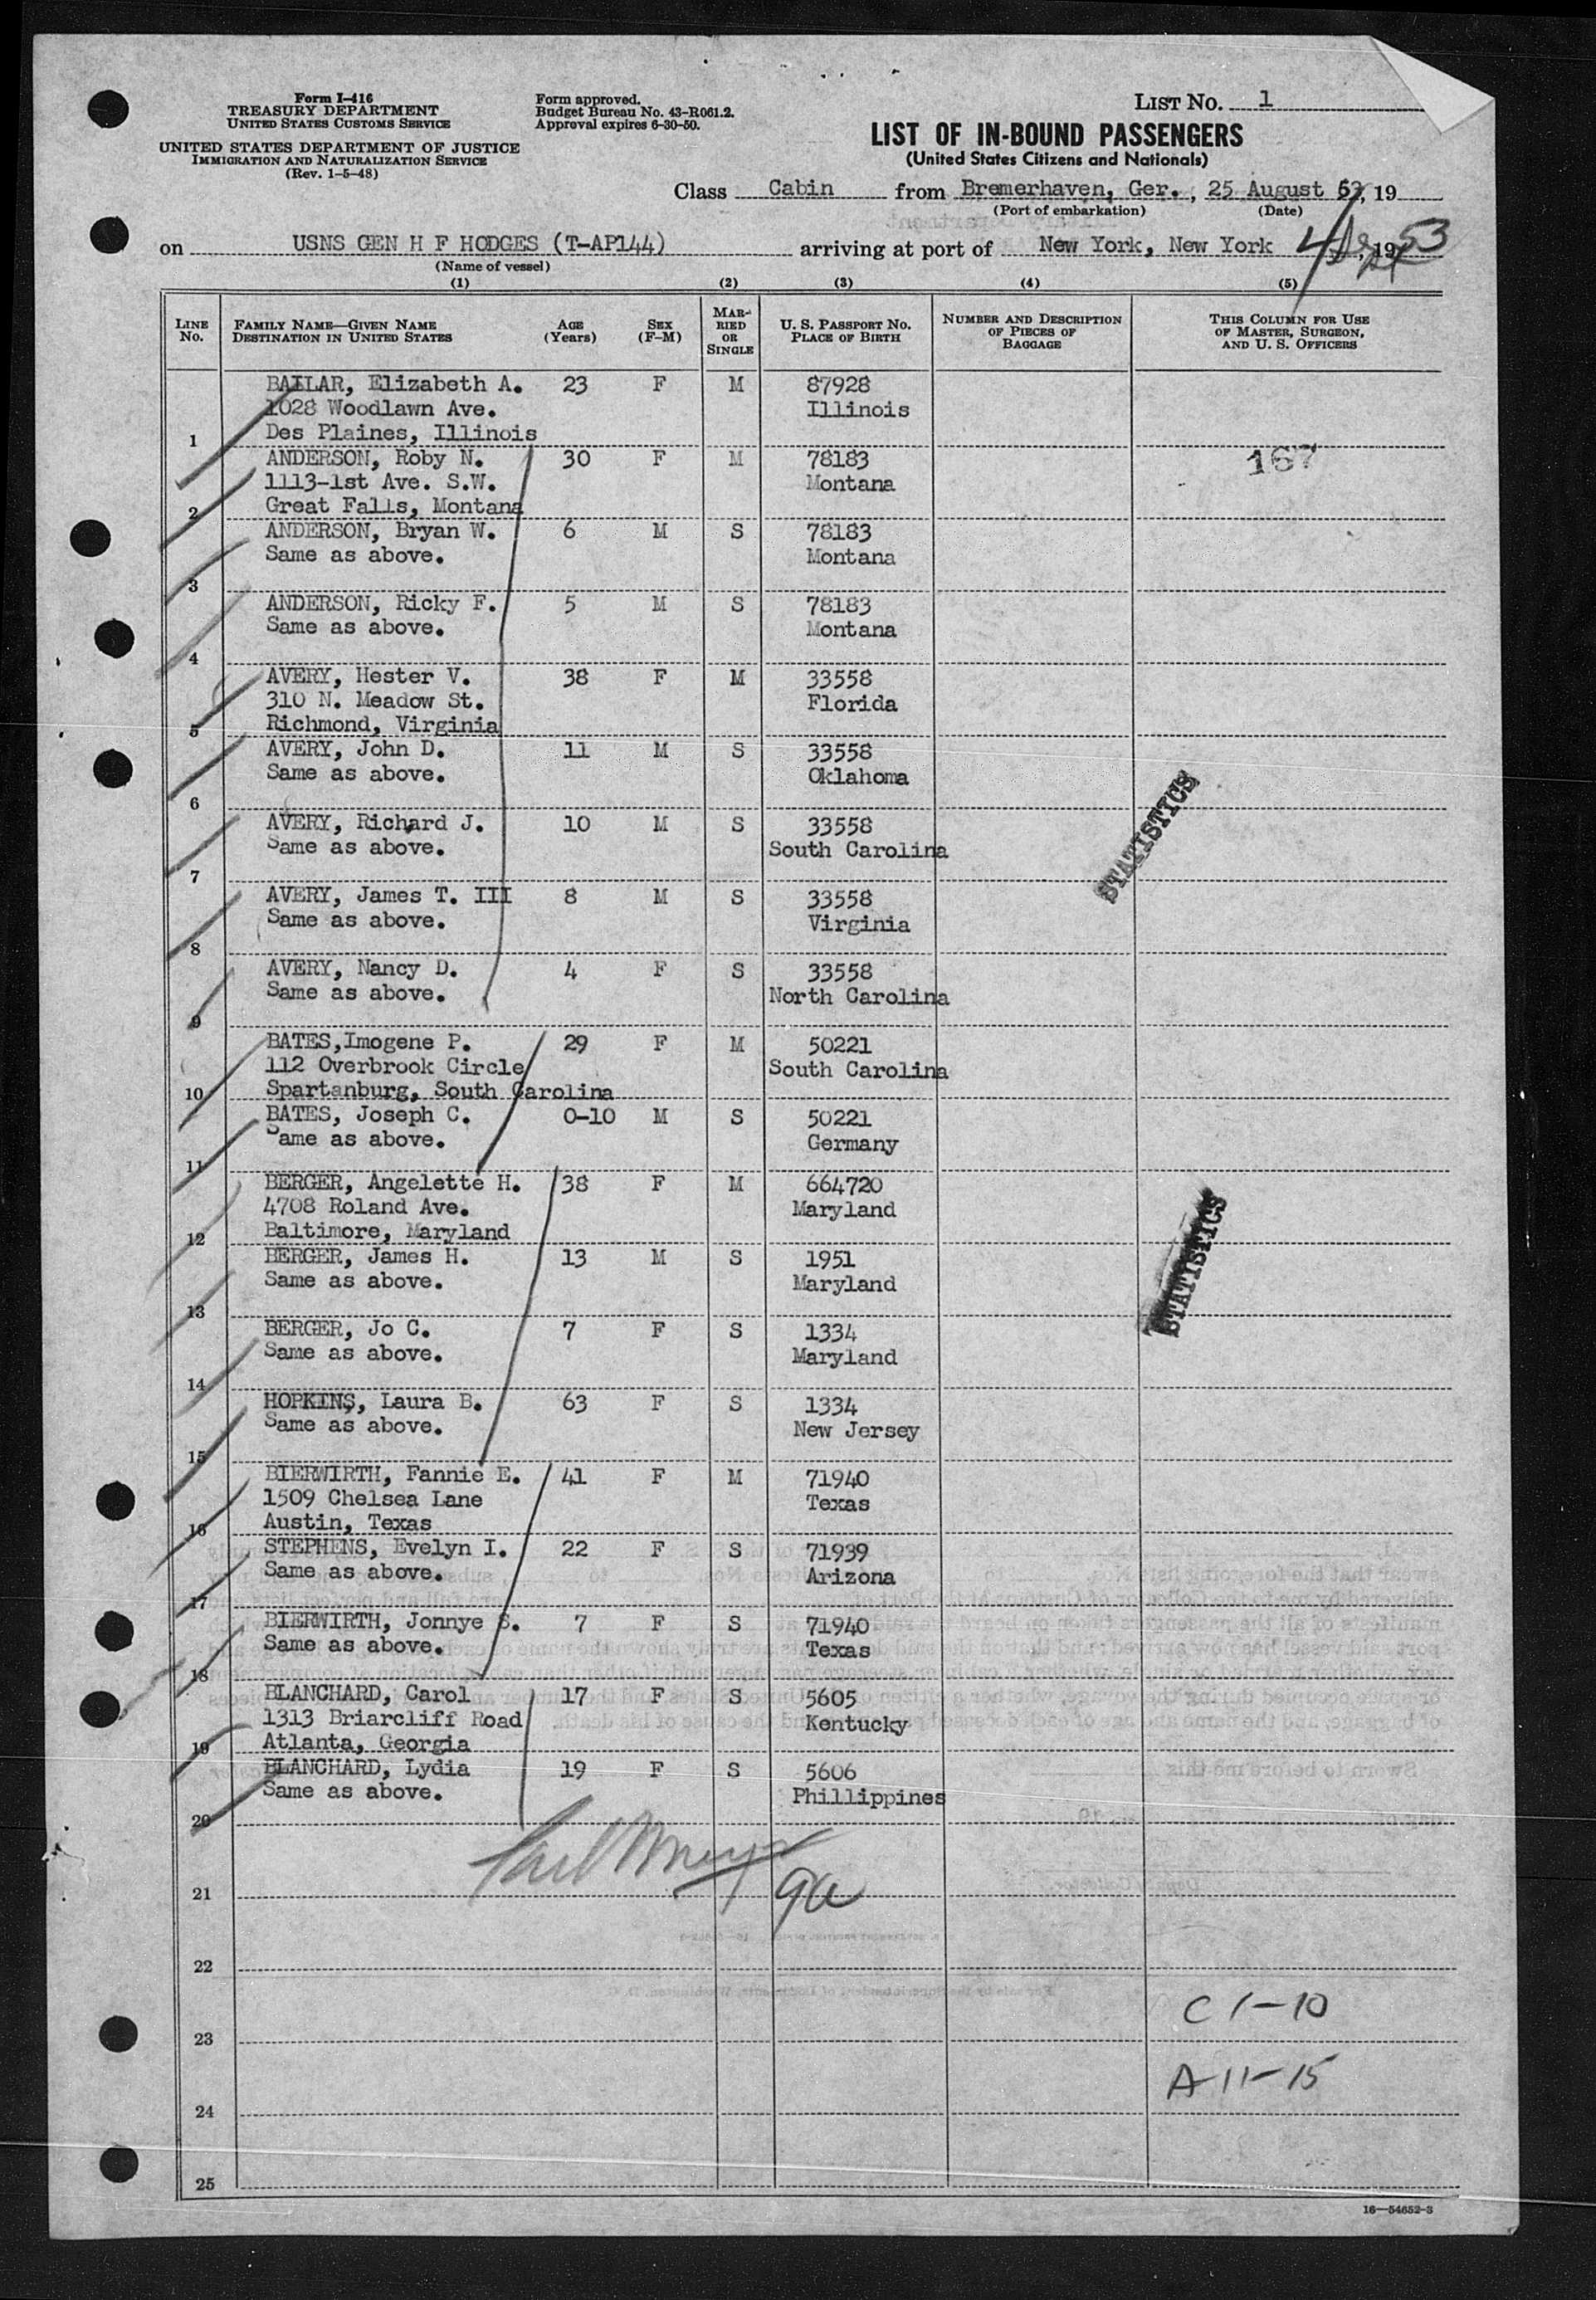 Form I-416
TREASURY DEPARTMENT
UNITED STATES CUSTOMS SERVICE
UNITED STATES DEPARTMENT OF JUSTICE
IMMIGRATION AND NATURALIZATION SERVICE
(Rev. 1-5-48)
Form approved.
Budget Bureau No. 43-R061.2.
Approval expires 6-30-50.
LIST NO. 1
LIST OF IN-BOUND PASSENGERS
(United States Citizens and Nationals)
Class Cabin from Bremerhaven, Ger., 25 August 53, 19
(Port of embarkation) (Date)
on USNS GEN H F HODGES (T-AP144) arriving at port of New York, New York 4 , 1953
(Name of vessel)
(1) (2) (3) (4) (5)
LINE NO.
FAMILY NAME—GIVEN NAME
DESTINATION IN UNITED STATES
AGE (Years)
SEX (F-M)
MARRIED OR SINGLE
U. S. PASSPORT NO.
PLACE OF BIRTH
NUMBER AND DESCRIPTION OF PIECES OF BAGGAGE
THIS COLUMN FOR USE OF MASTER, SURGEON, AND U. S. OFFICERS
BAILAR, Elizabeth A. 23 F M 87928
1028 Woodlawn Ave. Illinois
1 Des Plaines, Illinois
ANDERSON, Roby N. 30 F M 78183 167
1113-1st Ave. S.W. Montana
2 Great Falls, Montana
ANDERSON, Bryan W. 6 M S 78183
Same as above. Montana
3
ANDERSON, Ricky F. 5 M S 78183
Same as above. Montana
4
AVERY, Hester V. 38 F M 33558
310 N. Meadow St. Florida
5 Richmond, Virginia
AVERY, John D. 11 M S 33558
Same as above. Oklahoma
6
AVERY, Richard J. 10 M S 33558
Same as above. South Carolina
7
STATISTICS
AVERY, James T. III 8 M S 33558
Same as above. Virginia
8
AVERY, Nancy D. 4 F S 33558
Same as above. North Carolina
9
BATES,Imogene P. 29 F M 50221
112 Overbrook Circle South Carolina
10 Spartanburg, South Carolina
BATES, Joseph C. 0-10 M S 50221
Same as above. Germany
11
BERGER, Angelette H. 38 F M 664720
4708 Roland Ave. Maryland
12 Baltimore, Maryland
BERGER, James H. 13 M S 1951
Same as above. Maryland
13
STATISTICS
BERGER, Jo C. 7 F S 1334
Same as above. Maryland
14
HOPKINS, Laura B. 63 F S 1334
Same as above. New Jersey
15
BIERWIRTH, Fannie E. 41 F M 71940
1509 Chelsea Lane Texas
16 Austin, Texas
STEPHENS, Evelyn I. 22 F S 71939
Same as above. Arizona
17
BIERWIRTH, Jonnye S. 7 F S 71940
Same as above. Texas
18
BLANCHARD, Carol 17 F S 5605
1313 Briarcliff Road Kentucky
19 Atlanta, Georgia
BLANCHARD, Lydia 19 F S 5606
Same as above. Phillippines
20
21
22
C 1-10
23
A-11-15
24
25
16—54652-3